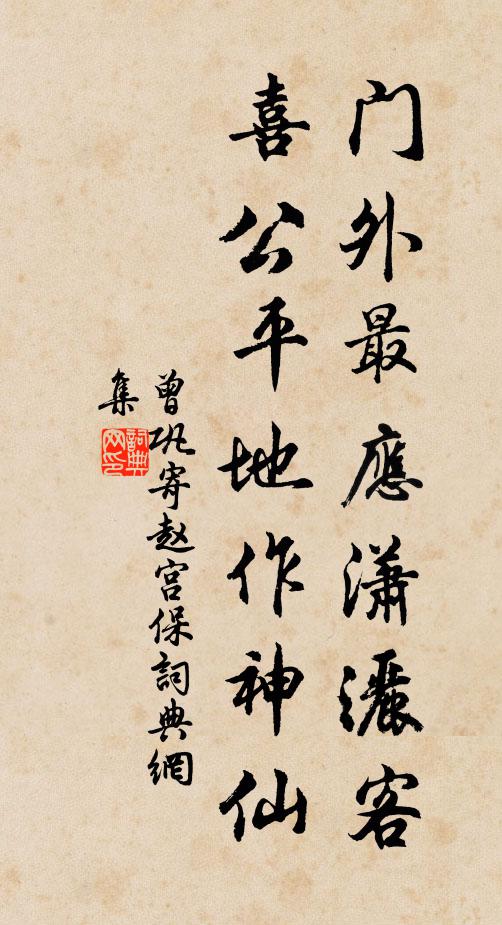 門外最應瀟灑客
喜公平地作神仙
曾巩寄赵宫保詞典網
集
詞典
网印